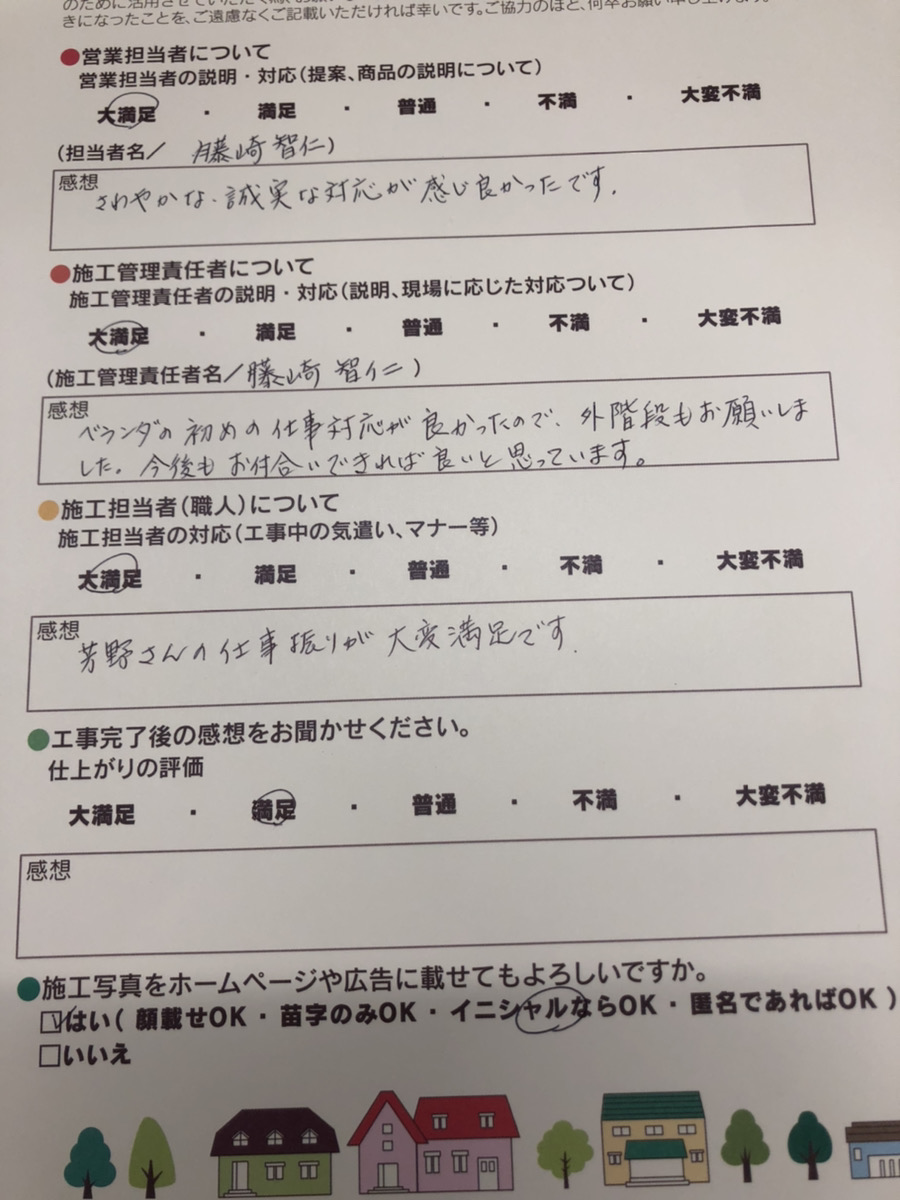 きになったことを、ご遠慮なくご記載いただければ幸いです。ご協力のほど、何卒お願い申し上げます。
●営業担当者について
営業担当者の説明・対応(提案、商品の説明について)
大満足 ・ 満足 ・ 普通 ・ 不満 ・ 大変不満
(担当者名/ 藤崎 智仁)
感想
さわやかな、誠実な対応が感じ良かったです.
●施工管理責任者について
施工管理責任者の説明・対応(説明、現場に応じた対応ついて)
大満足 ・ 満足 ・ 普通 ・ 不満 ・ 大変不満
(施工管理責任者名/藤崎 智仁)
感想
ベランダの初めの仕事対応が良かったので、外階段もお願いしま
した。今後もお付合いできれば良いと思っています。
●施工担当者(職人)について
施工担当者の対応(工事中の気遣い、マナー等)
大満足 ・ 満足 ・ 普通 ・ 不満 ・ 大変不満
感想
芳野さんの仕事振りが大変満足です.
●工事完了後の感想をお聞かせください。
仕上がりの評価
大満足 ・ 満足 ・ 普通 ・ 不満 ・ 大変不満
感想
●施工写真をホームページや広告に載せてもよろしいですか。
☑はい( 顔載せOK ・ 苗字のみOK ・ イニシャルならOK ・ 匿名であればOK )
□いいえ